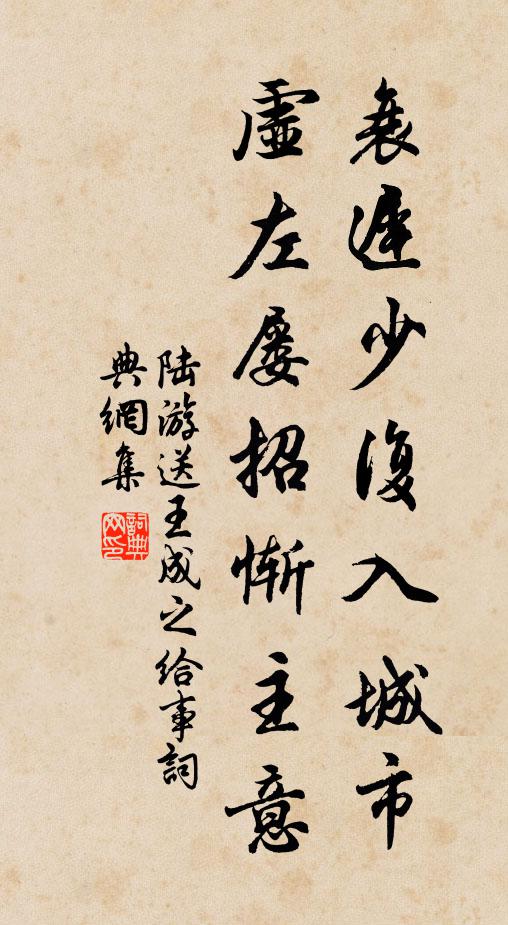 衰遲少復入城市
虛左屢招慚主意
陸游送王成之給事詞
典網集
詞典
网印